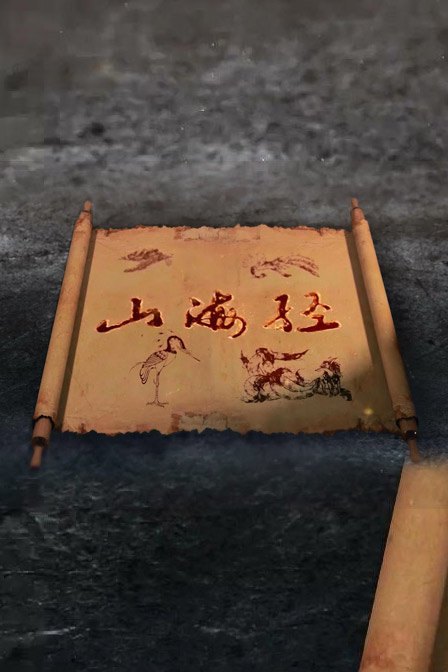 山海经